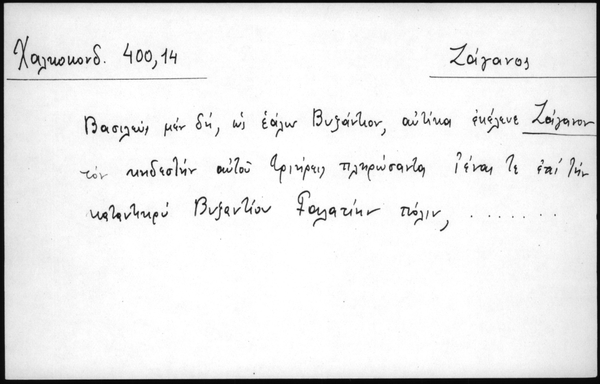 Χαλκοκονδ. 400,14
Ζάγανος
Βασιλεὺς μὲν δή, ὡς ἑάλω Βυζάντιον, αὐτίκα ἐκέλευε Ζάγανον
τὸν κηδεστὴν αὐτοῦ τριήρεις πληρώσαντα ἰέναι τε ἐπὶ τὴν
καταντικρὺ Βυζαντίου Γαλατίην πόλιν, .......